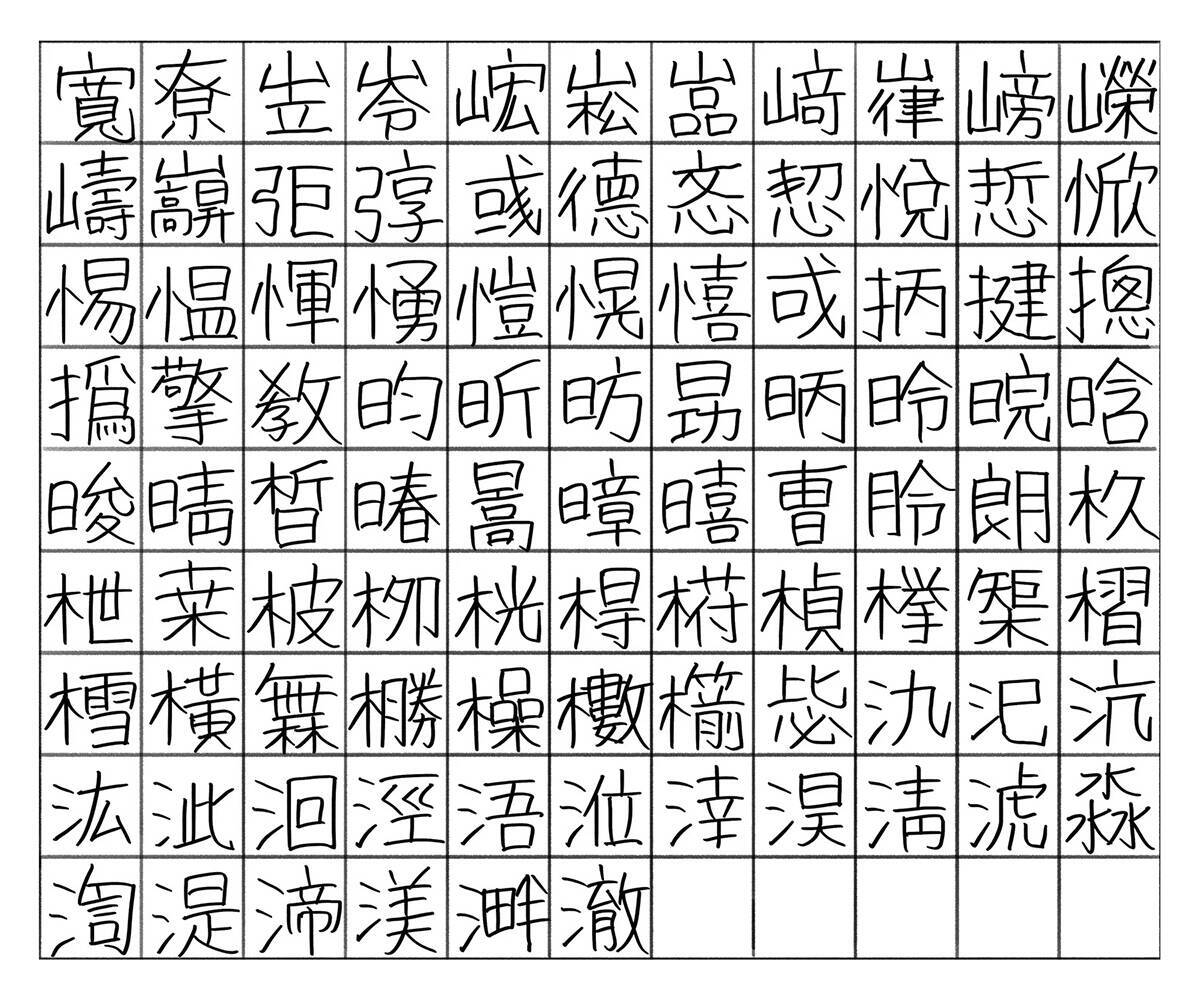 寬尞岦岺峵崧嵓﨑嵂嵭嶸
嶹巐弡弴彧德忞恝悅悊惞
惕愠惲愑愷愰憘戓抦揵摠
撝擎敎昀昕昉昻昞昤晥晗
晙晴晳暙暠暲暿曺朎朗杦
枻桒柀栁桄棏﨓楨﨔榘槢
樰橫橆橳橾櫢櫤毖氿汜沆
汯泚洄涇浯涖涬淏淸淲淼
渹湜渧渼溿澈